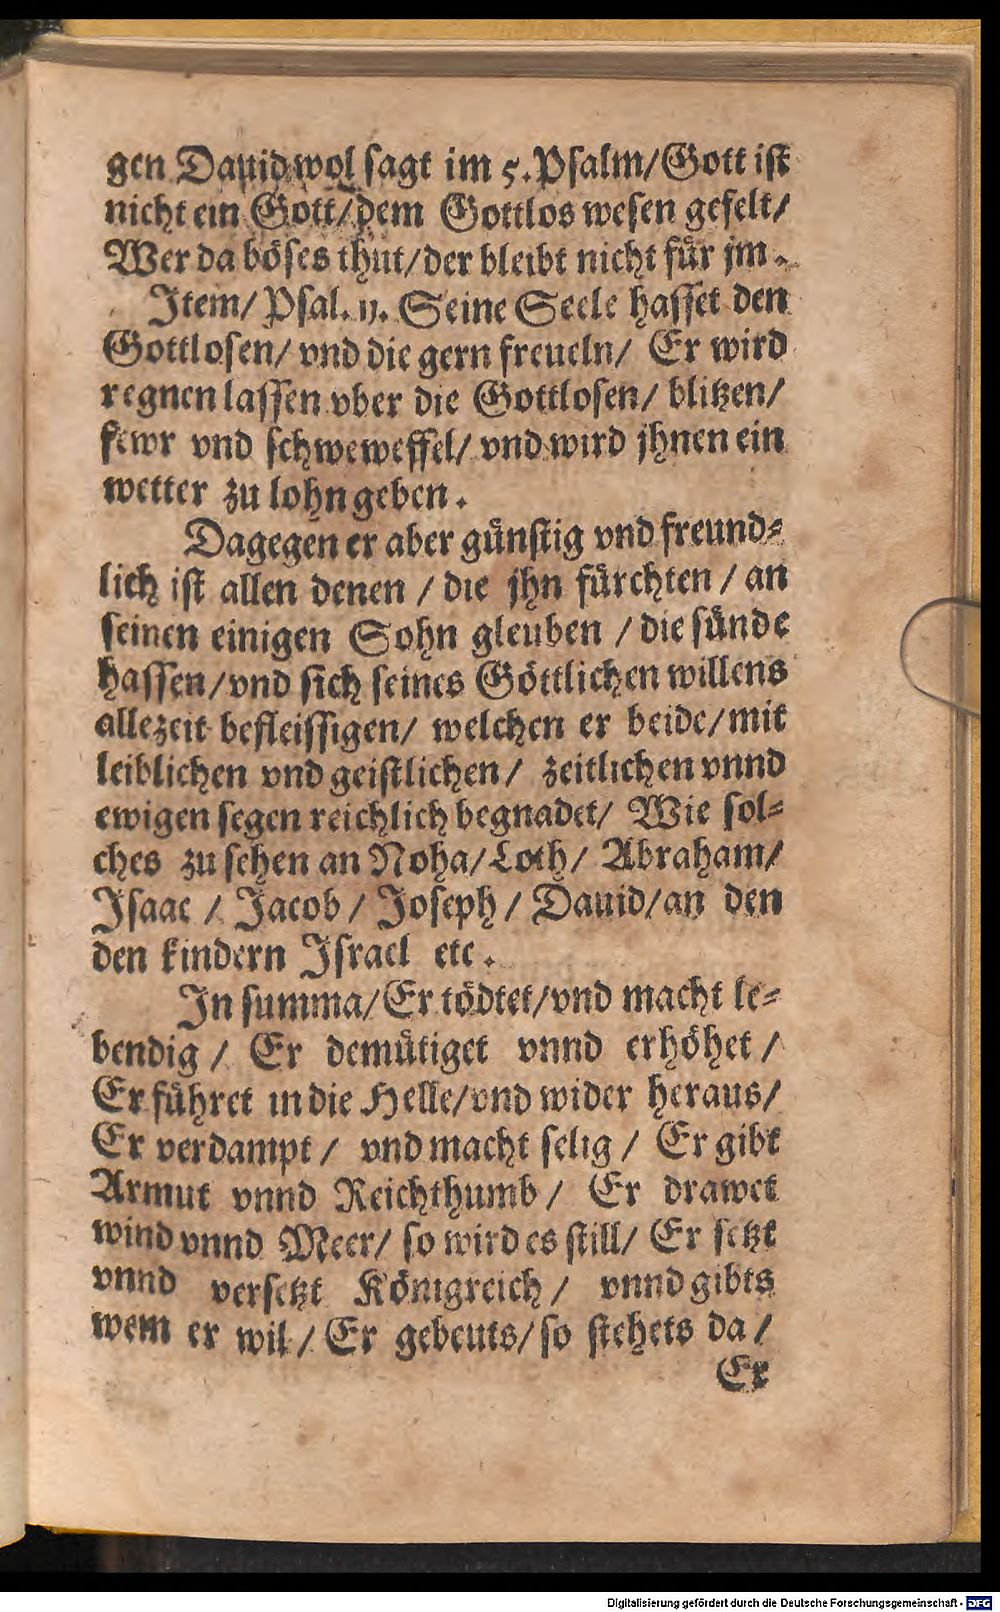 gen Dauid wol sagt im 5. Psalm/ Gott ist
nicht ein Gott/ dem Gottlos wesen gefelt/
Wer da böses thut/ der bleibt nicht für jm.
Item/ Psal. 11. Seine Seele hasset den
Gottlosen/ vnd die gern freueln/ Er wird
regnen lassen vber die Gottlosen/ blitzen/
fewr vnd schweweffel/ vnd wird jhnen ein
wetter zu lohn geben.
Dagegen er aber günstig vnd freund⸗
lich ist allen denen / die jhn fürchten / an
seinen einigen Sohn gleuben / die sünde
hassen/ vnd sich seines Göttlichen willens
allezeit befleissigen/ welchen er beide/ mit
leiblichen vnd geistlichen/ zeitlichen vnnd
ewigen segen reichlich begnadet/ Wie sol⸗
ches zu sehen an Noha/ Loth/ Abraham/
Isaac / Jacob / Joseph / Dauid/ an den
den kindern Israel etc.
In summa/ Er tödtet/ vnd macht le⸗
bendig / Er demütiget vnnd erhöhet /
Er führet in die Helle/ vnd wider heraus/
Er verdampt / vnd macht selig / Er gibt
Armut vnnd Reichthumb / Er drawet
wind vnnd Meer/ so wird es still/ Er setzt
vnnd versetzt Königreich / vnnd gibts
wem er wil / Er gebeuts/ so stehets da /
Er
Digitalisierung gefördert durch die Deutsche Forschungsgemeinschaft - DFG